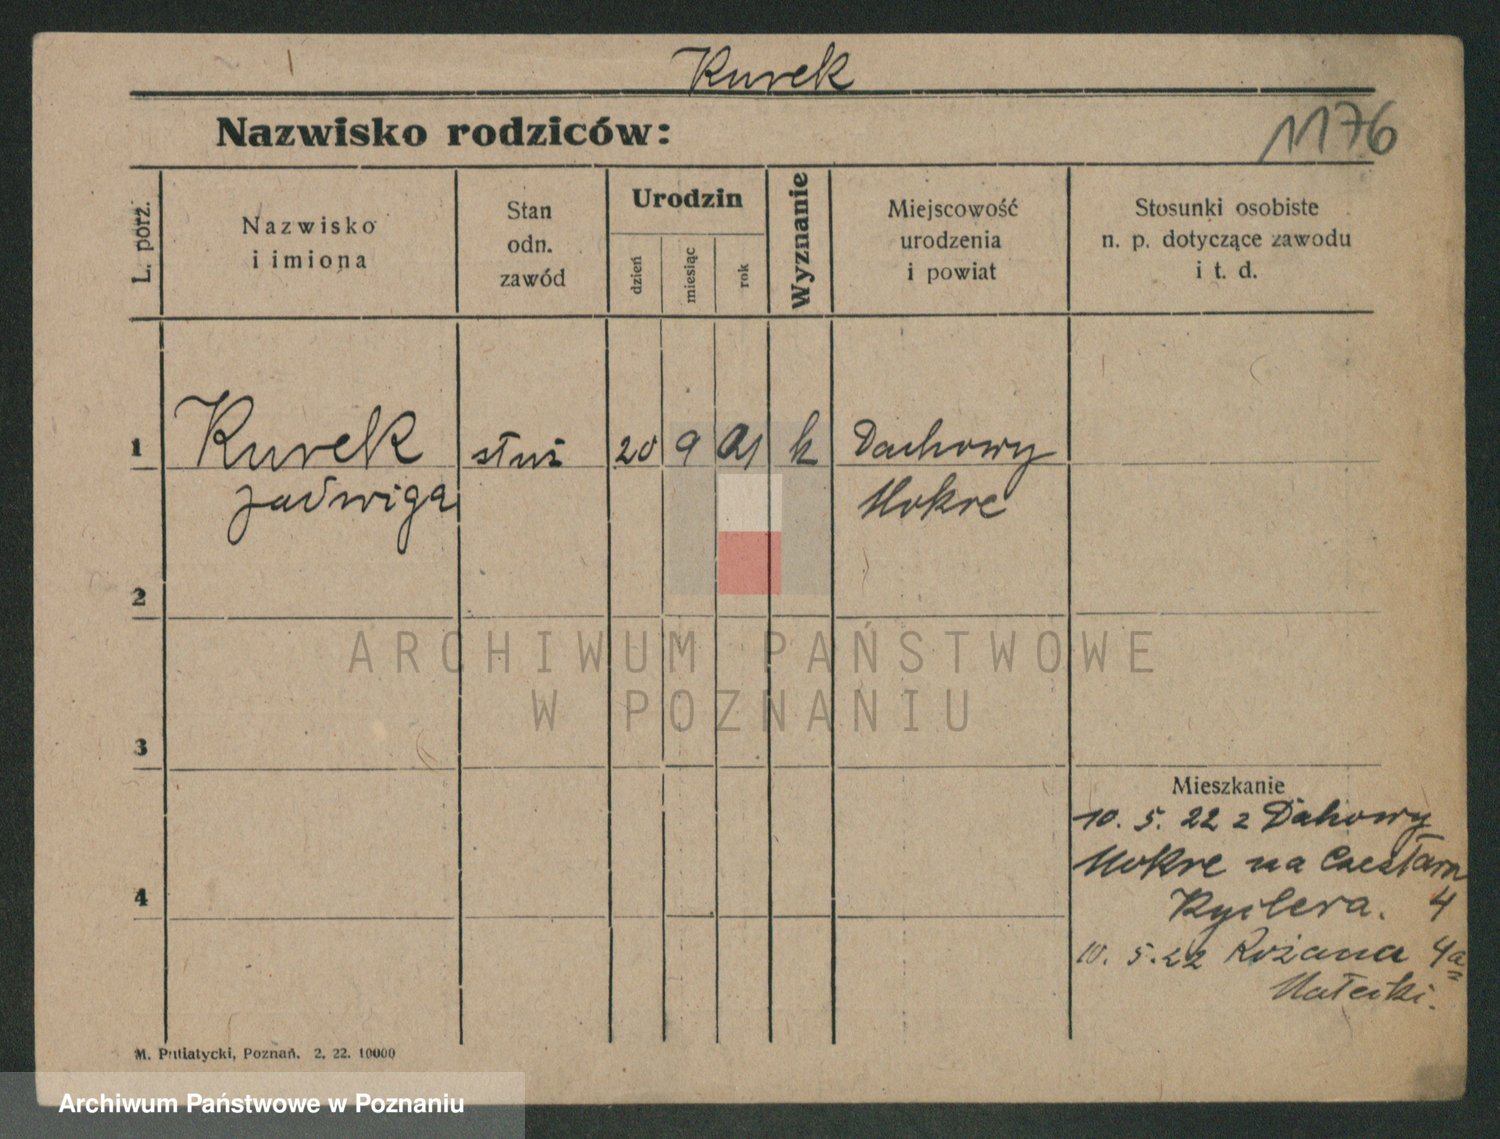 Kurek
Nazwisko rodziców:
1176
L. porz.
Nazwisko
i imiona
Stan
odn.
zawód
Urodzin
dzień
miesiąc
rok
Wyznanie
Miejscowość
urodzenia
i powiat
Stosunki osobiste
n. p. dotyczące zawodu
i t. d.
1 Kurek służ 20 9 01 k Dachowy
Jadwiga Mokre
2
ARCHIWUM PAŃSTWOWE
W POZNANIU
3
Mieszkanie
10. 5. 22 z Dahowy
Mokre na
4
4
10. 5. 22 Różana 4a
Małecki.
M. Putiatycki, Poznań. 2. 22. 10000
Archiwum Państwowe w Poznaniu